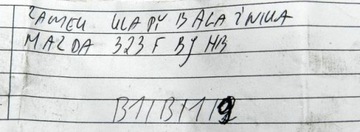 ZAMEK KLAPY BAGAŻNIKA
MAZDA 323F BJ HB
B1/B1/9